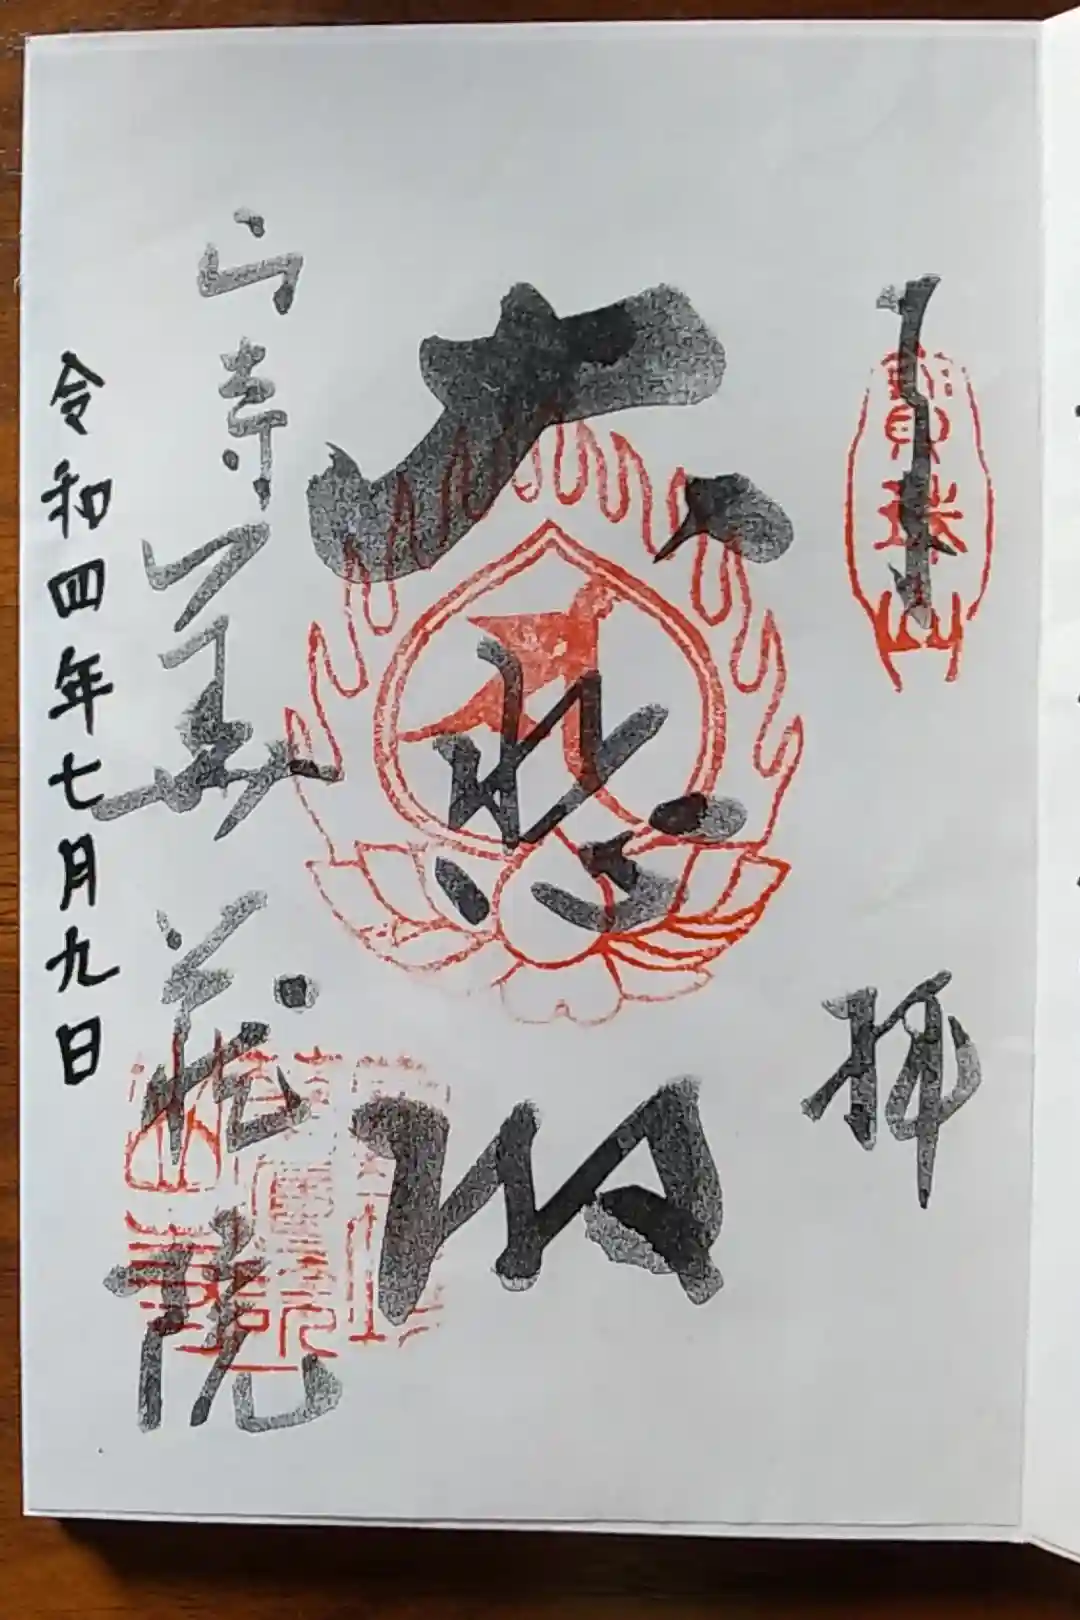 奉拝
寶珠山
大悲
山寺 華蔵院
令和四年七月九日